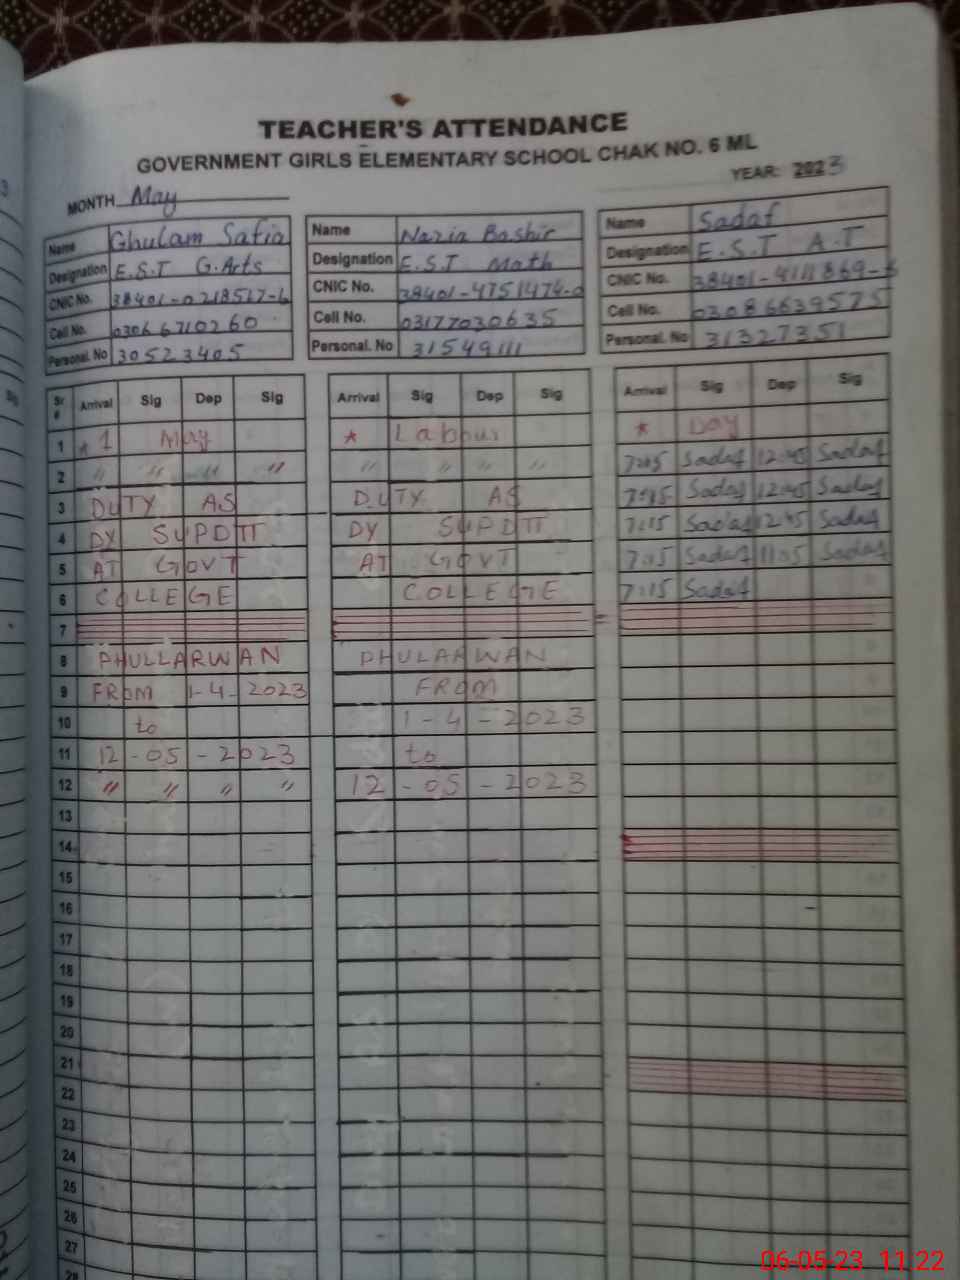 TEACHER'S ATTENDANCE
GOVERNMENT GIRLS ELEMENTARY SCHOOL CHAK NO. 6 ML
MONTH May YEAR: 2023
Name Ghulam Safia
Designation E.S.T G.Arts
CNIC No.
Cell No. 03066710260
Personal. No 30523405
Name Nazia Bashir
Designation E.S.T Math
CNIC No. 38401-4751474-0
Cell No. 03177030635
Personal. No 31549111
Name Sadaf
Designation E.S.T A.T
CNIC No.
Cell No. 03086639575
Personal. No 31327351
Sr # Arrival Sig Dep Sig Arrival Sig Dep Sig Arrival Sig Dep Sig
1 * 1 May * Labour * Day
2 " " " " " " " " Sadaf 12:45 Sadaf
3 DUTY AS DUTY AS 7:15 Sadaf 12:45 Sadaf
4 DY SUPDTT DY SUPDTT 7:15 Sadaf 12:45 Sadaf
5 AT GOVT AT GOVT 7:15 Sadaf 11:05 Sadaf
6 COLLEGE COLLEGE 7:15 Sadaf
7
8 PHULLARWAN PHULARWAN
9 FROM 1-4-2023 FROM
10 to 1-4-2023
11 12-05-2023 to
12 " " " " 12-05-2023
13
14
15
16
17
18
19
20
21
22
23
24
25
26
27
28
06-05-23 11:22